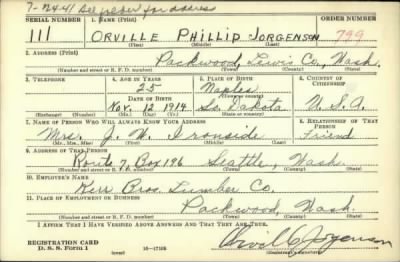 7-24-41 See folder for address
SERIAL NUMBER 1. NAME (Print) ORDER NUMBER
111 ORVILLE PHILLIP JORGENSON 799
(First) (Middle) (Last)
2. ADDRESS (Print)
Packwood, Lewis Co., Wash.
(Number and street or R. F. D. number) (Town) (County) (State)
3. TELEPHONE 4. AGE IN YEARS 5. PLACE OF BIRTH 6. COUNTRY OF CITIZENSHIP
25 Naples
DATE OF BIRTH (Town or county)
Nov. 12 1914 So. Dakota U.S.A.
(Exchange) (Number) (Mo.) (Day) (Yr.) (State or country)
7. NAME OF PERSON WHO WILL ALWAYS KNOW YOUR ADDRESS 8. RELATIONSHIP OF THAT PERSON
Mrs. J. W. Ironside Friend
(Mr., Mrs., Miss) (First) (Middle) (Last)
9. ADDRESS OF THAT PERSON
Route 7, Box 196 Seattle, Wash.
(Number and street or R. F. D. number) (Town) (County) (State)
10. EMPLOYER'S NAME
Kerr Bros. Lumber Co.
11. PLACE OF EMPLOYMENT OR BUSINESS
Packwood, Wash.
(Number and street or R. F. D. number) (Town) (County) (State)
I AFFIRM THAT I HAVE VERIFIED ABOVE ANSWERS AND THAT THEY ARE TRUE.
REGISTRATION CARD
D. S. S. Form 1 (over) 16—17105 Jorgenson